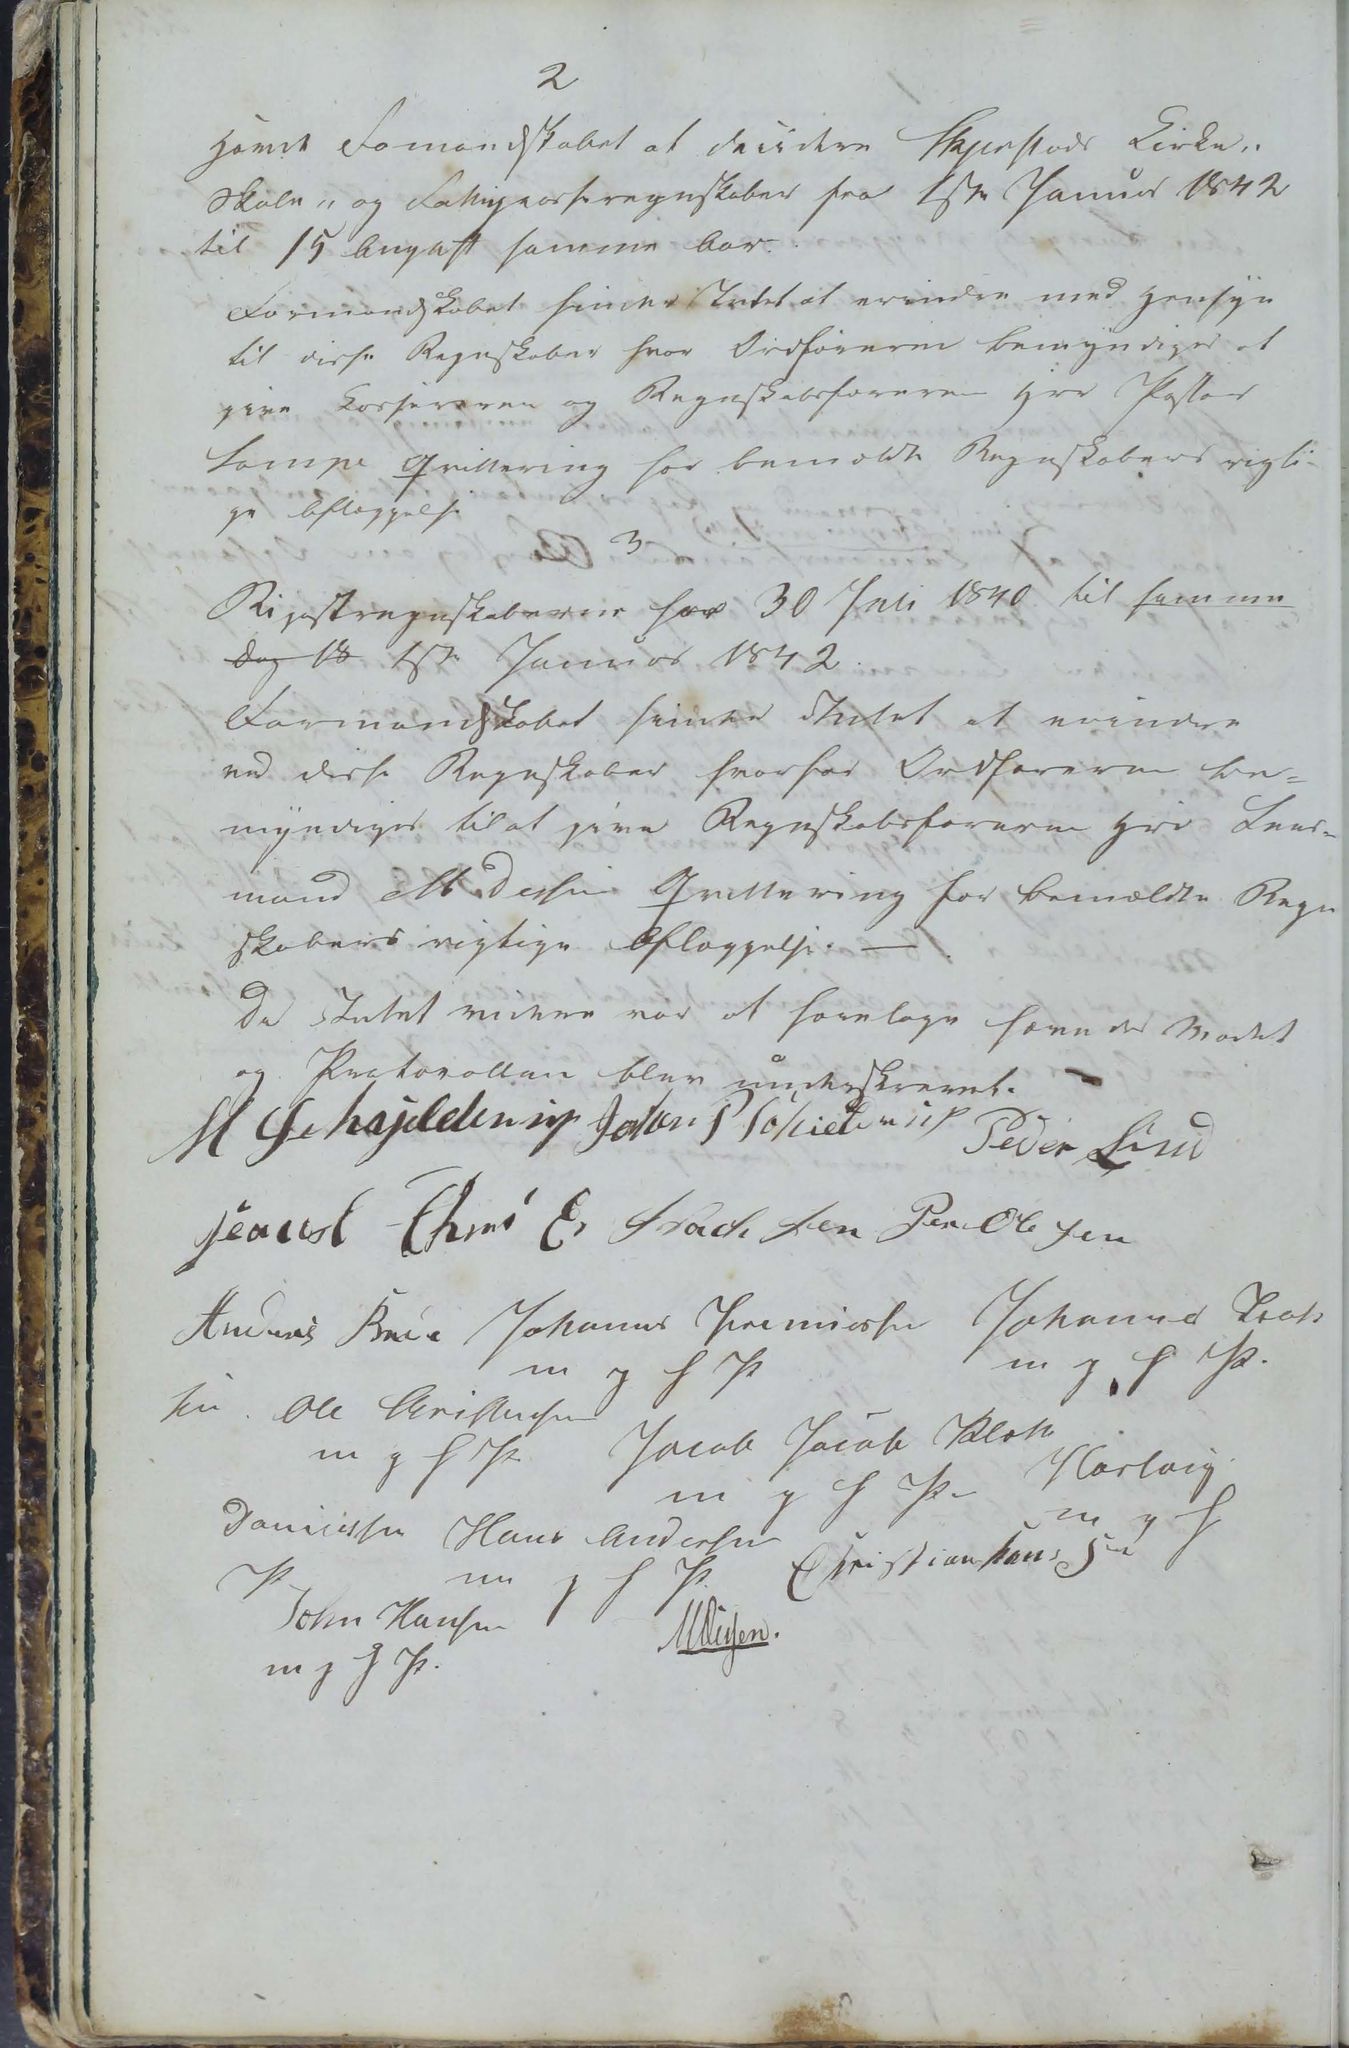 2
havde Formandskabet at decidere Skjerstads Kirke,,
Skole,, og Fattigkasseregnskaber fra 1ste Januar 1842
til 15 August samme Aar.
Formandskabet finder Intet at erindre med Hensyn
til disse Regnskaber hvor Ordføreren bemyndiges at
give Kassereren og Regnskabsføreren Hrr Pastor
Lampe Qvittering for bemeldte Regnskabers rigti-
ge Aflæggelse
3
Rejseregnskaberne for 30 Juli 1840 til samme
Dag 18 1ste Januar 1842
Formandskabet finder Intet at erindre
ved disse Regnskaber hvorfor Ordføreren be=
myndiges til at give Regnskabsføreren Hrr Lens-
mand Qvittering for bemeldte Regn
skabers rigtige Aflæggelse. —
Da Intet videre var at foretage hævedes Mødet
og Protocollen blev underskrevet. —
Peder Lind
Jentoft Chris Er Per Olsen
Anders Johannes Jeremiassen Johannes Isak
m g f P m g f P.
sen. Ole Christensen
m g f P Jacob Jacob
m g f P. Hartvig
m g f
Danielsen Hans Andersen
P m g f P. Christian Hansen
John Hansen
m g f P.